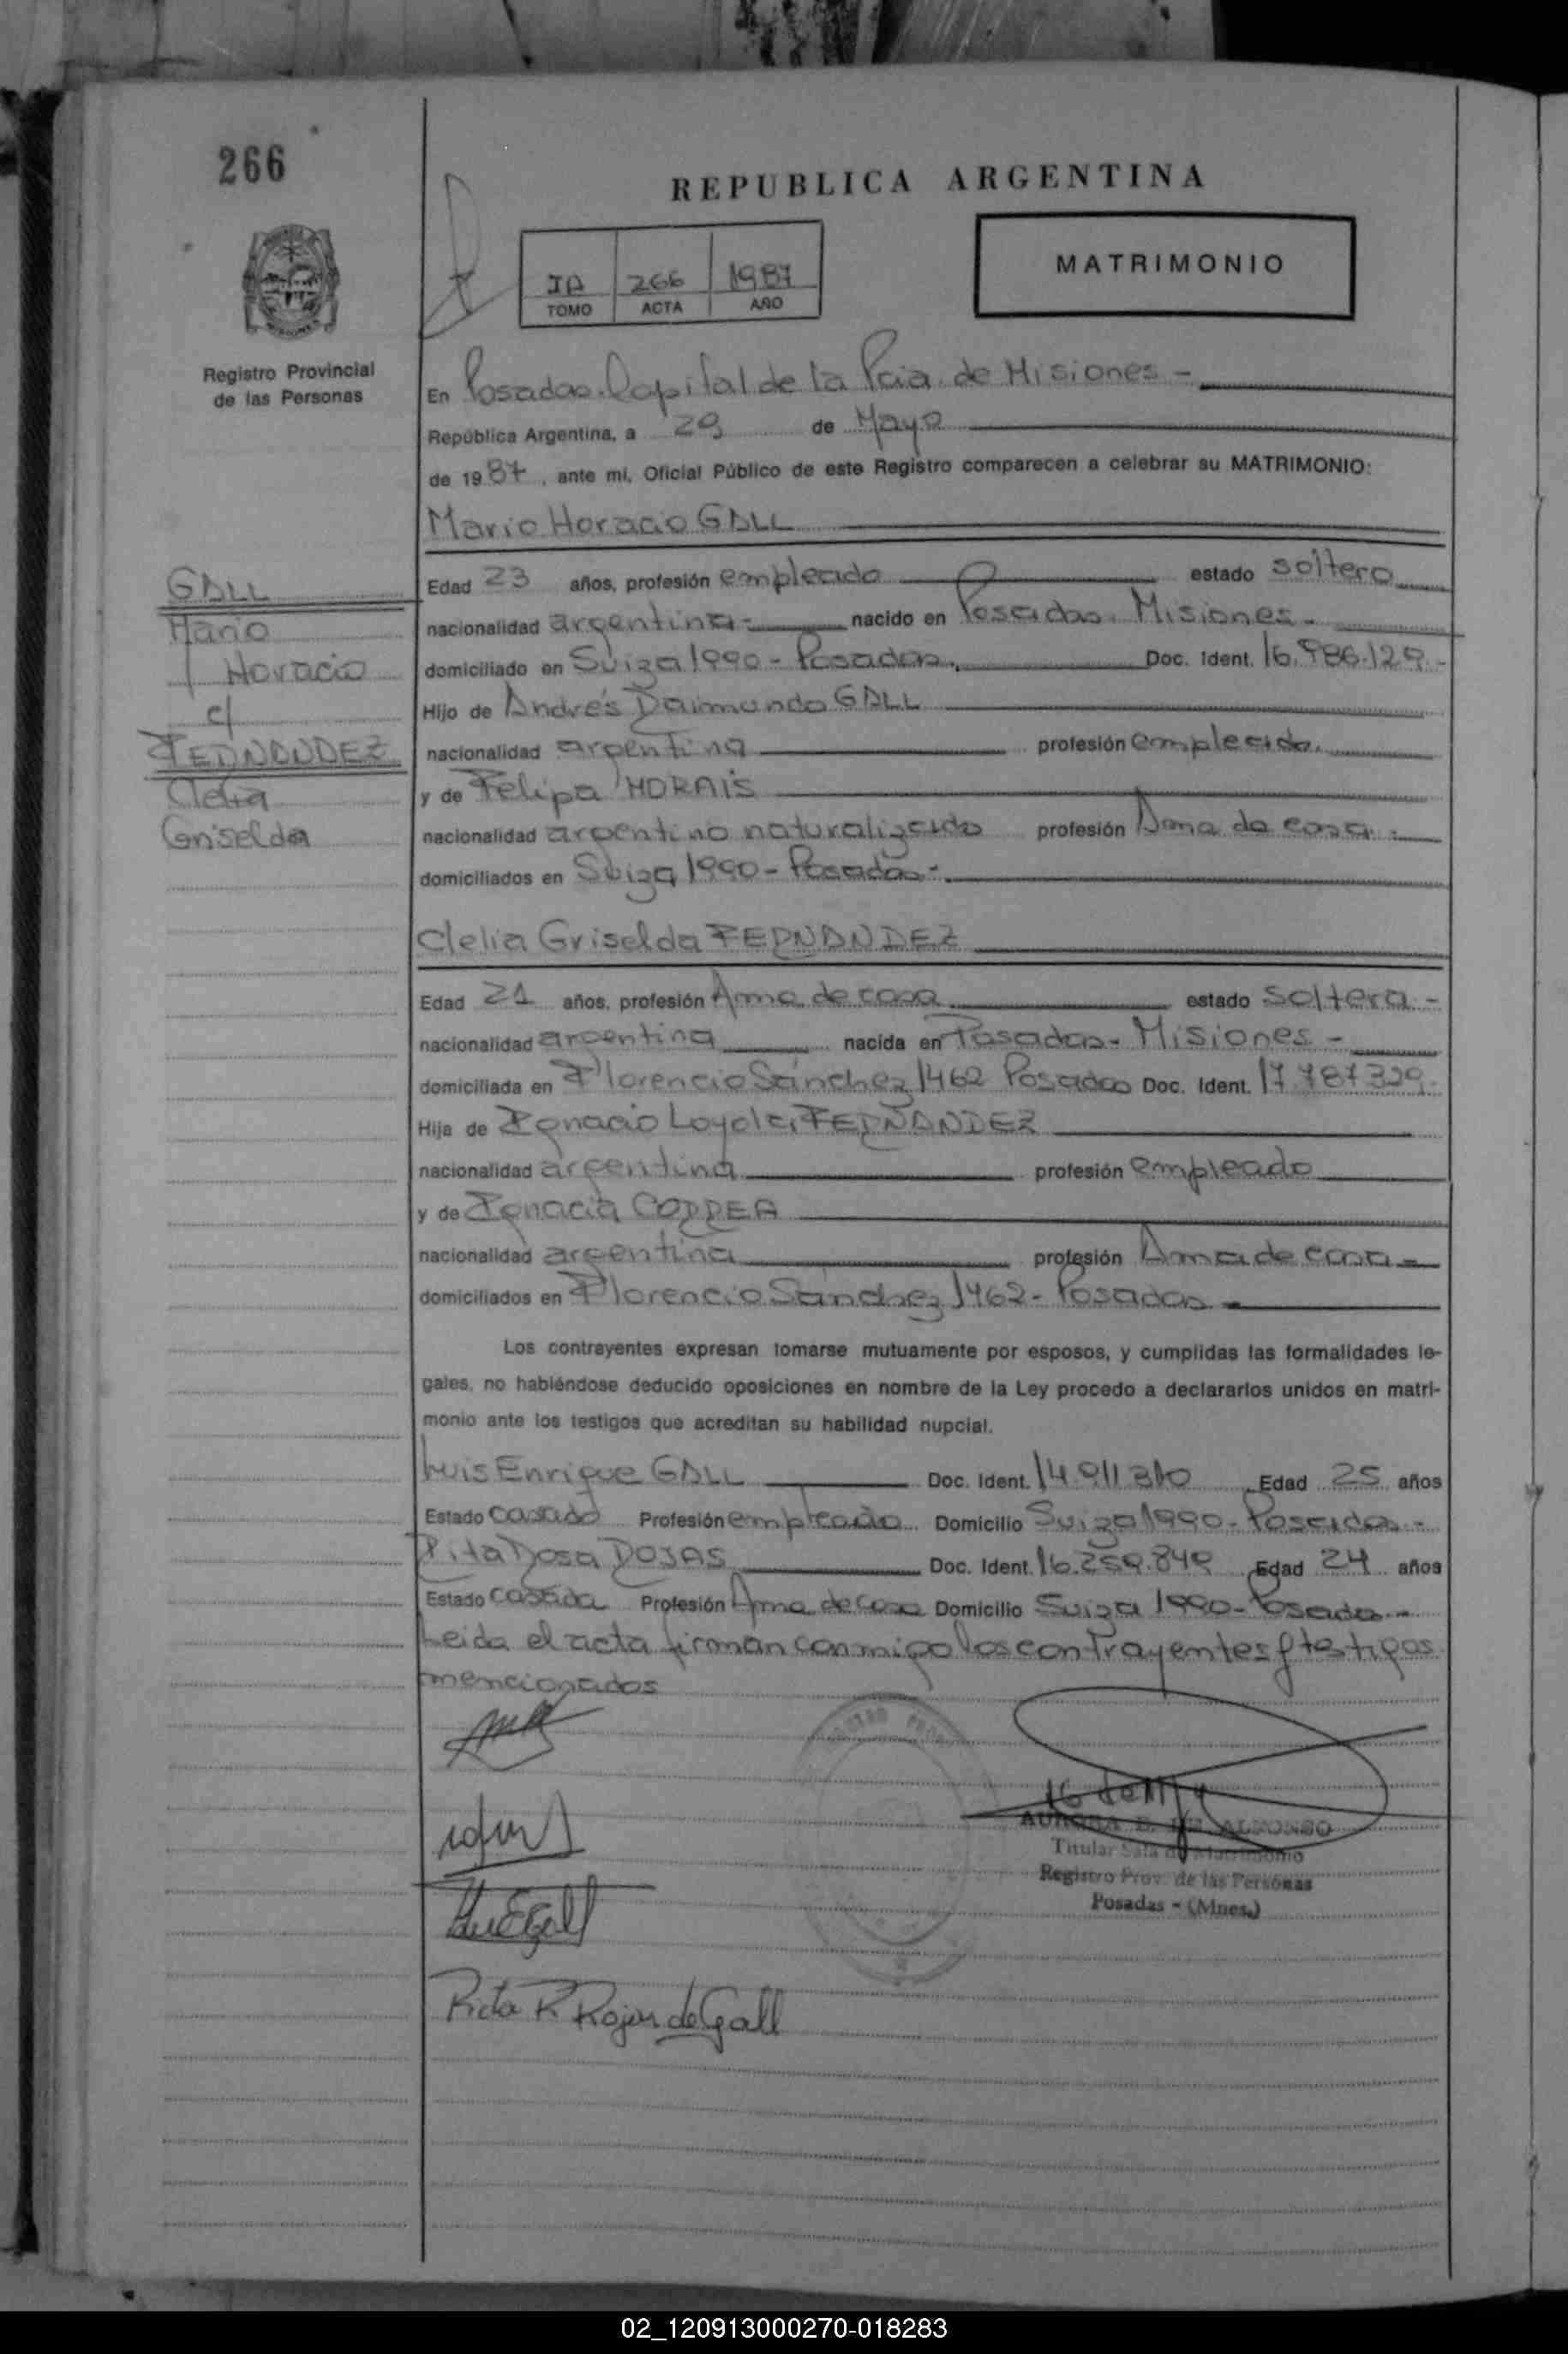 266
REPUBLICA ARGENTINA
MATRIMONIO
266 1987
TOMO ACTA AÑO
Registro Provincial
de las Personas
En Posadas. Capital de la Pcia. de Misiones -
República Argentina, a 29 de Mayo
de 1987, ante mi, Oficial Público de este Registro comparecen a celebrar su MATRIMONIO:
Mario Horacio GALL
GALL
Mario
Horacio
c/
FERNANDEZ
Clelia
Griselda
Edad 23 años, profesión empleado estado soltero
nacionalidad argentina - nacido en Posadas. Misiones -
domiciliado en Suiza 1990 - Posadas. Doc. Ident. 16.986.129 -
Hijo de Andrés Raimundo GALL
nacionalidad argentina profesión empleado.
y de Felipa MORAIS
nacionalidad argentino naturalizado profesión Ama de casa -
domiciliados en Suiza 1990 - Posadas -
Clelia Griselda FERNANDEZ
Edad 21 años, profesión Ama de casa estado soltera -
nacionalidad argentina nacida en Posadas - Misiones -
domiciliada en Florencio Sánchez 1462 Posadas Doc. Ident. 17.787.329
Hija de Ignacio Loyola FERNANDEZ
nacionalidad argentina profesión empleado
y de Ignacia CORREA
nacionalidad argentina profesión Ama de casa -
domiciliados en Florencio Sánchez 1462 - Posadas -
Los contrayentes expresan tomarse mutuamente por esposos, y cumplidas las formalidades le-
gales, no habiéndose deducido oposiciones en nombre de la Ley procedo a declararlos unidos en matri-
monio ante los testigos que acreditan su habilidad nupcial.
Luis Enrique GALL Doc. Ident. 14.911.310 Edad 25 años
Estado casado Profesión empleado Domicilio Suiza 1990 - Posadas -
Rita Rosa ROJAS Doc. Ident. 16.259.849 Edad 24 años
Estado casada Profesión Ama de casa Domicilio Suiza 1990 - Posadas -
Leida el acta firman conmigo los contrayentes y testigos
mencionados
AURORA ALFONSO
Titular Sala de Matrimonio
Registro Prov. de las Personas
Posadas - (Mnes.)
Rita R Rojas de Gall
02_120913000270-018283